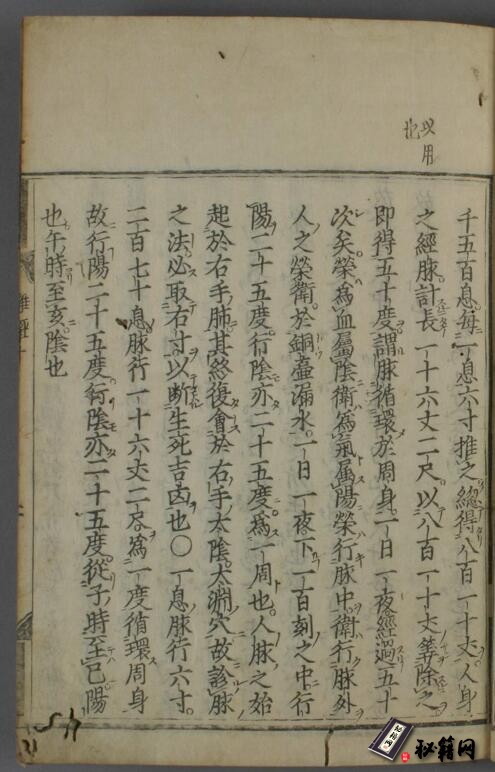 以用
也
千五百息每一息六寸推之總得八百一十丈人身
之經脉計長一十六丈二尺以八百一十丈筭除之
即得五十度謂脉循環於周身一日一夜經過五十
次矣榮爲血屬陰衛爲氣属陽榮行脉中衛行脉外
人之榮衛於銅壺漏水一日一夜下一百刻之中行
陽二十五度行陰亦二十五度爲一周也人脉之始
起於右手肺其終復會於右手太陰太淵穴故診脉
之法必取右寸以断生死吉凶也○一息脉行六寸
二百七十息脉行一十六丈二尺爲一度循環周身
故行陽二十五度行陰亦二十五度從子時至巳陽
也午時至亥陰也
秘籍网